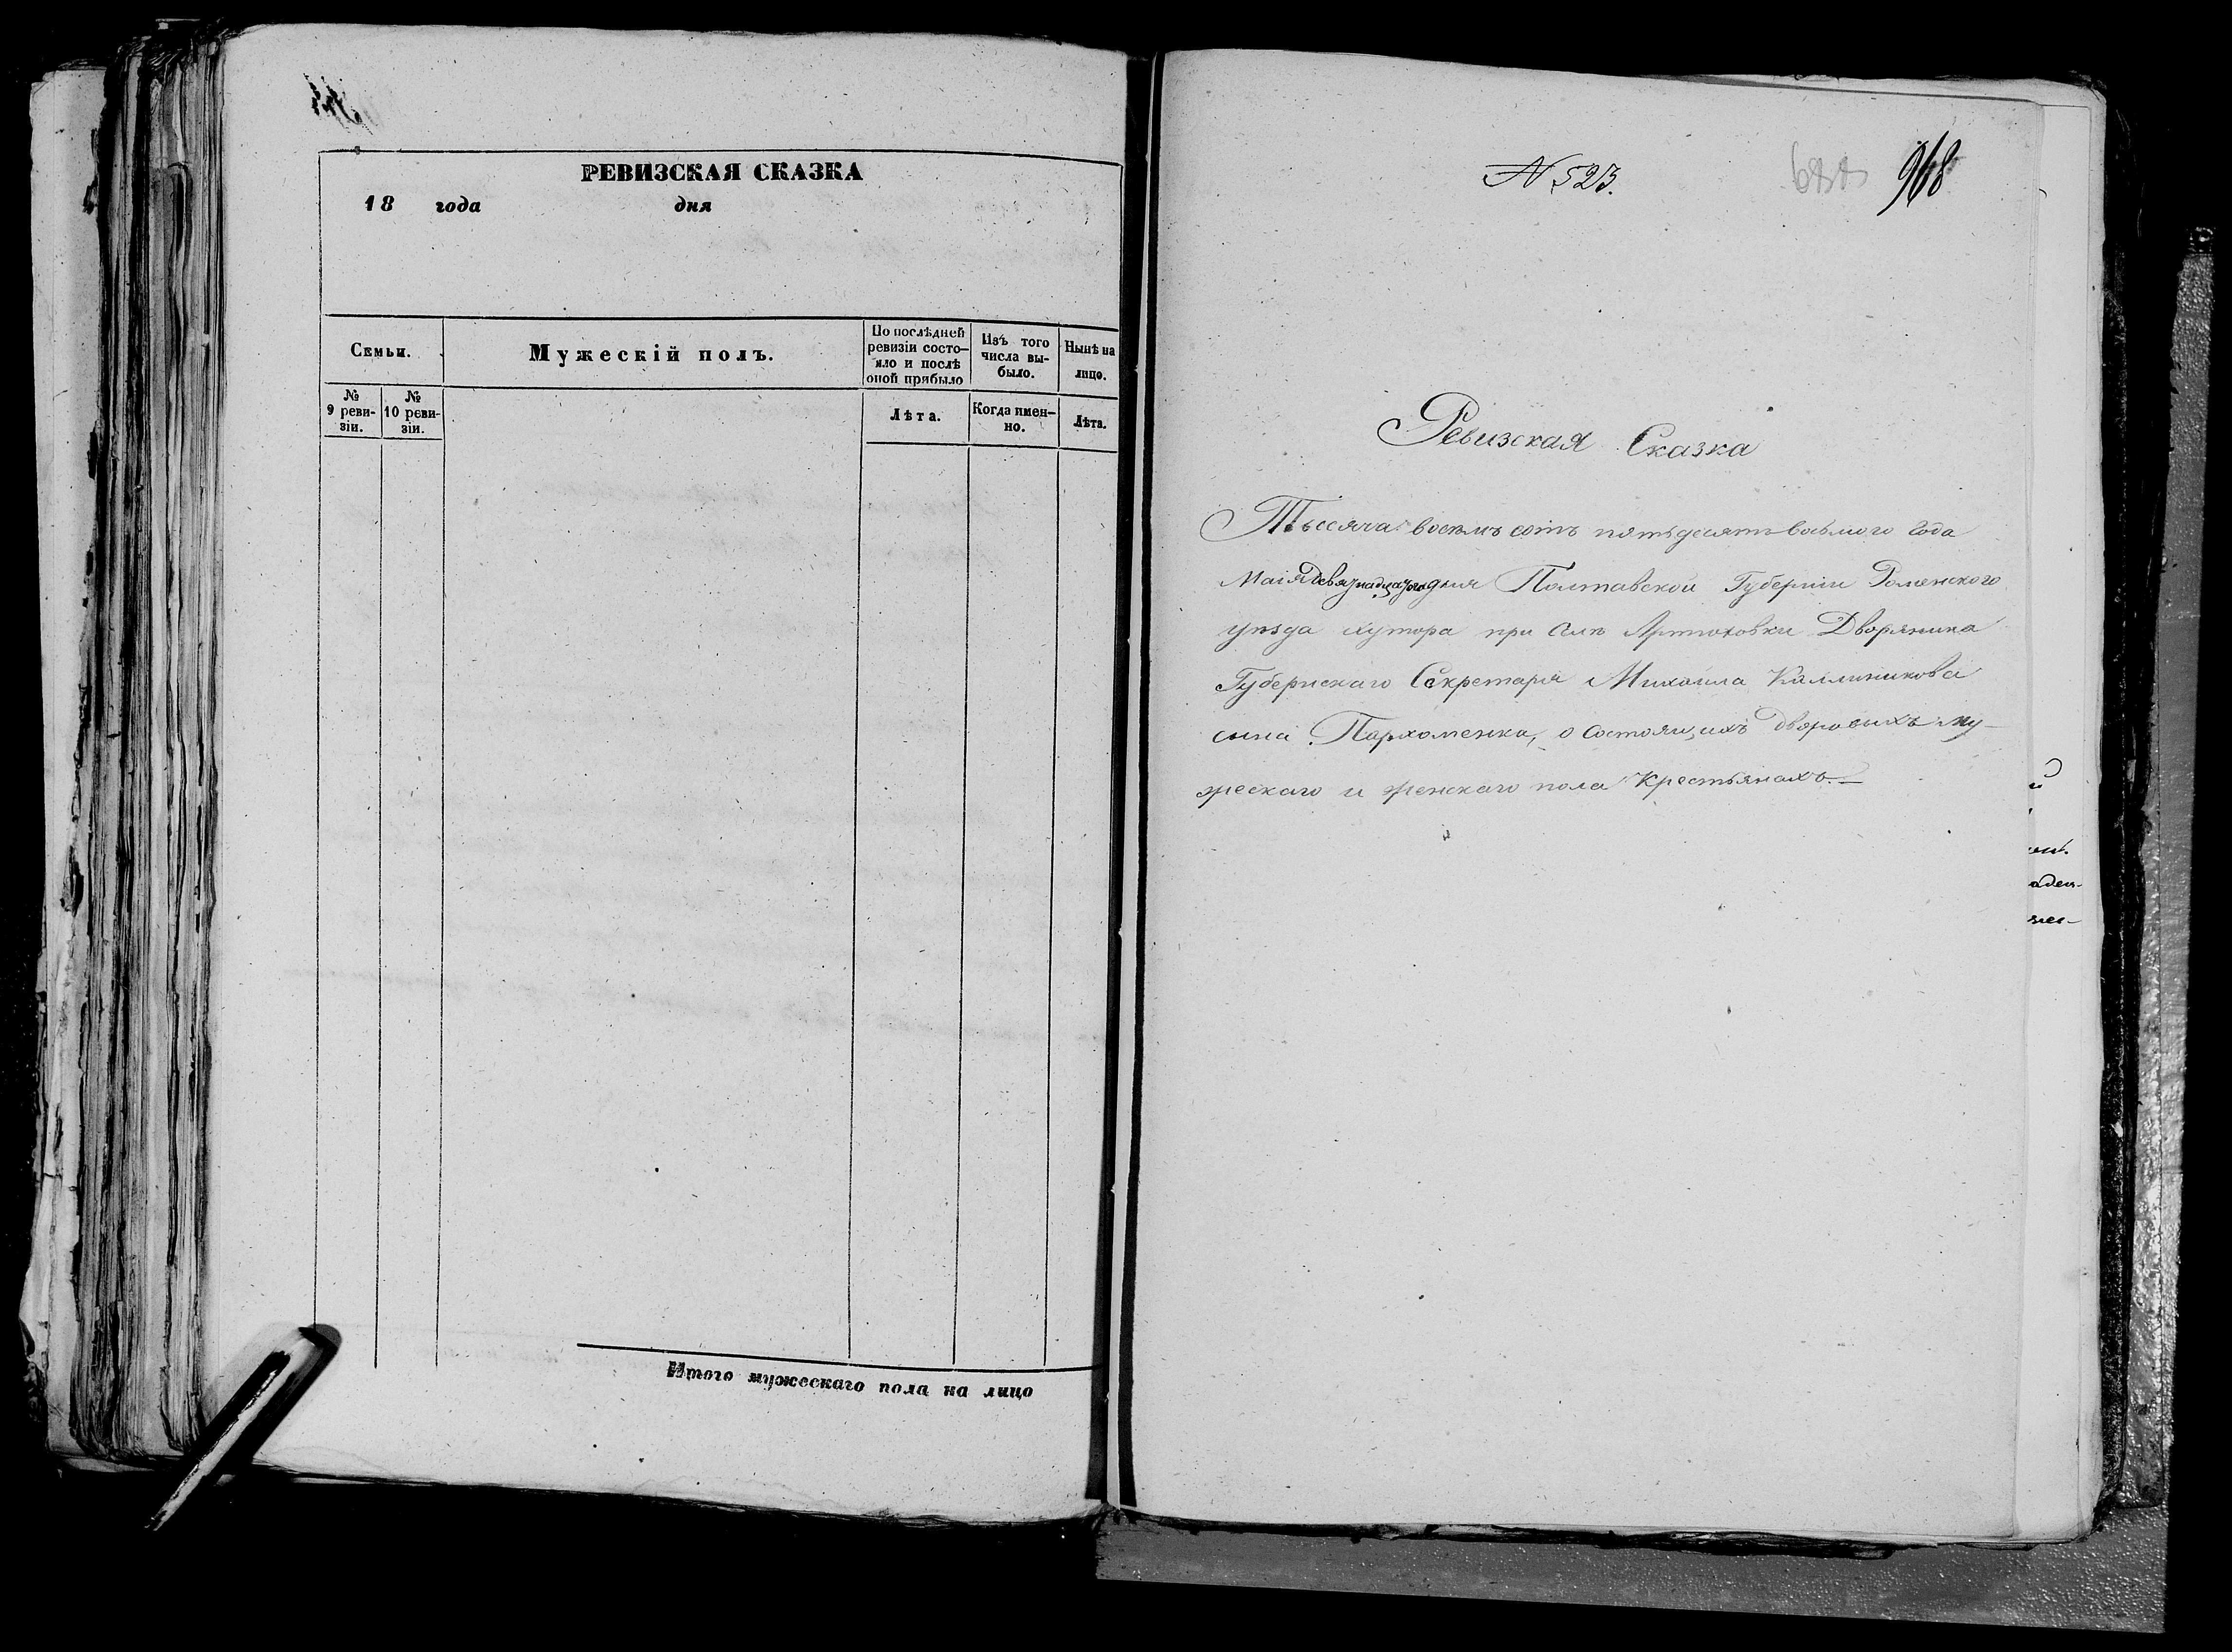 РЕВИЗСКАЯ СКАЗКА
18 года дня
Семьи.
Мужескій полъ.
По послѣдней ревизіи состо-
яло и послѣ
оной прибыло
Изъ того
числа вы-
было.
Нынѣ на
лицо.
№
9 реви-
зіи.
№
10 реви-
зіи.
Лѣта.
Когда имен-
но.
Лѣта.
Итого мужескаго пола на лицо
N 523.
968
Ревизская Сказка
Тысяча восемъ сотъ пятьдесятъ восьмого Года
Маія Девятнадцатого дня Полтавской Губерніи Роменского
уѣзда хутора при Селѣ Артюховки Дворянина
Губернскаго Секретаря Михаила Каллиникова
сына Пархоменка, о Состоящихъ дворовихъ му-
жескаго и женскаго пола Крестьянахъ.—